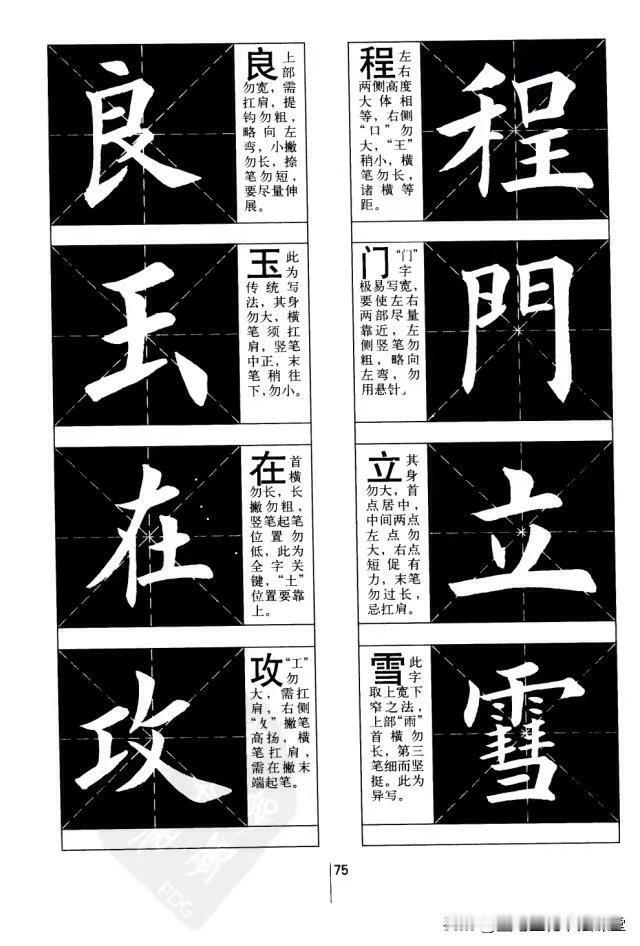 良
良 上部
勿宽，需
扛肩，提
钩勿粗，
略向左
弯，小撇
勿长，捺
笔勿短，
要尽量伸
展。
程 左右
两侧高度
大体相
等，右侧
“口”勿
大，“王”
稍小，横
笔勿长，
诸横等
距。
程
玉
玉 此为
传统写
法，其身
勿大，横
笔须扛
肩，竖笔
中正，末
笔稍往
下，勿小。
门 “门”字
极易写宽，
要使左右
两部尽量
靠近，左
侧竖笔勿
粗，略向
左弯，勿
用悬针。
門
在
在 首横
勿长，长
撇勿粗，
竖笔起笔
位置勿
低，此为
全字关
键，“土”
位置要靠
上。
立 其身
勿大，首
点居中，
中间两点
左点勿
大，右点
短促有
力，末笔
勿过长，
忌扛肩。
立
攻
攻 “工”勿
大，需扛
肩，右侧
“攵”撇笔
高扬，横
笔扛肩，
需在撇末
端起笔。
雪 此字
取上宽下
窄之法，
上部“雨”
首横勿
长，第三
笔细而坚
挺。此为
异写。
75
PDG